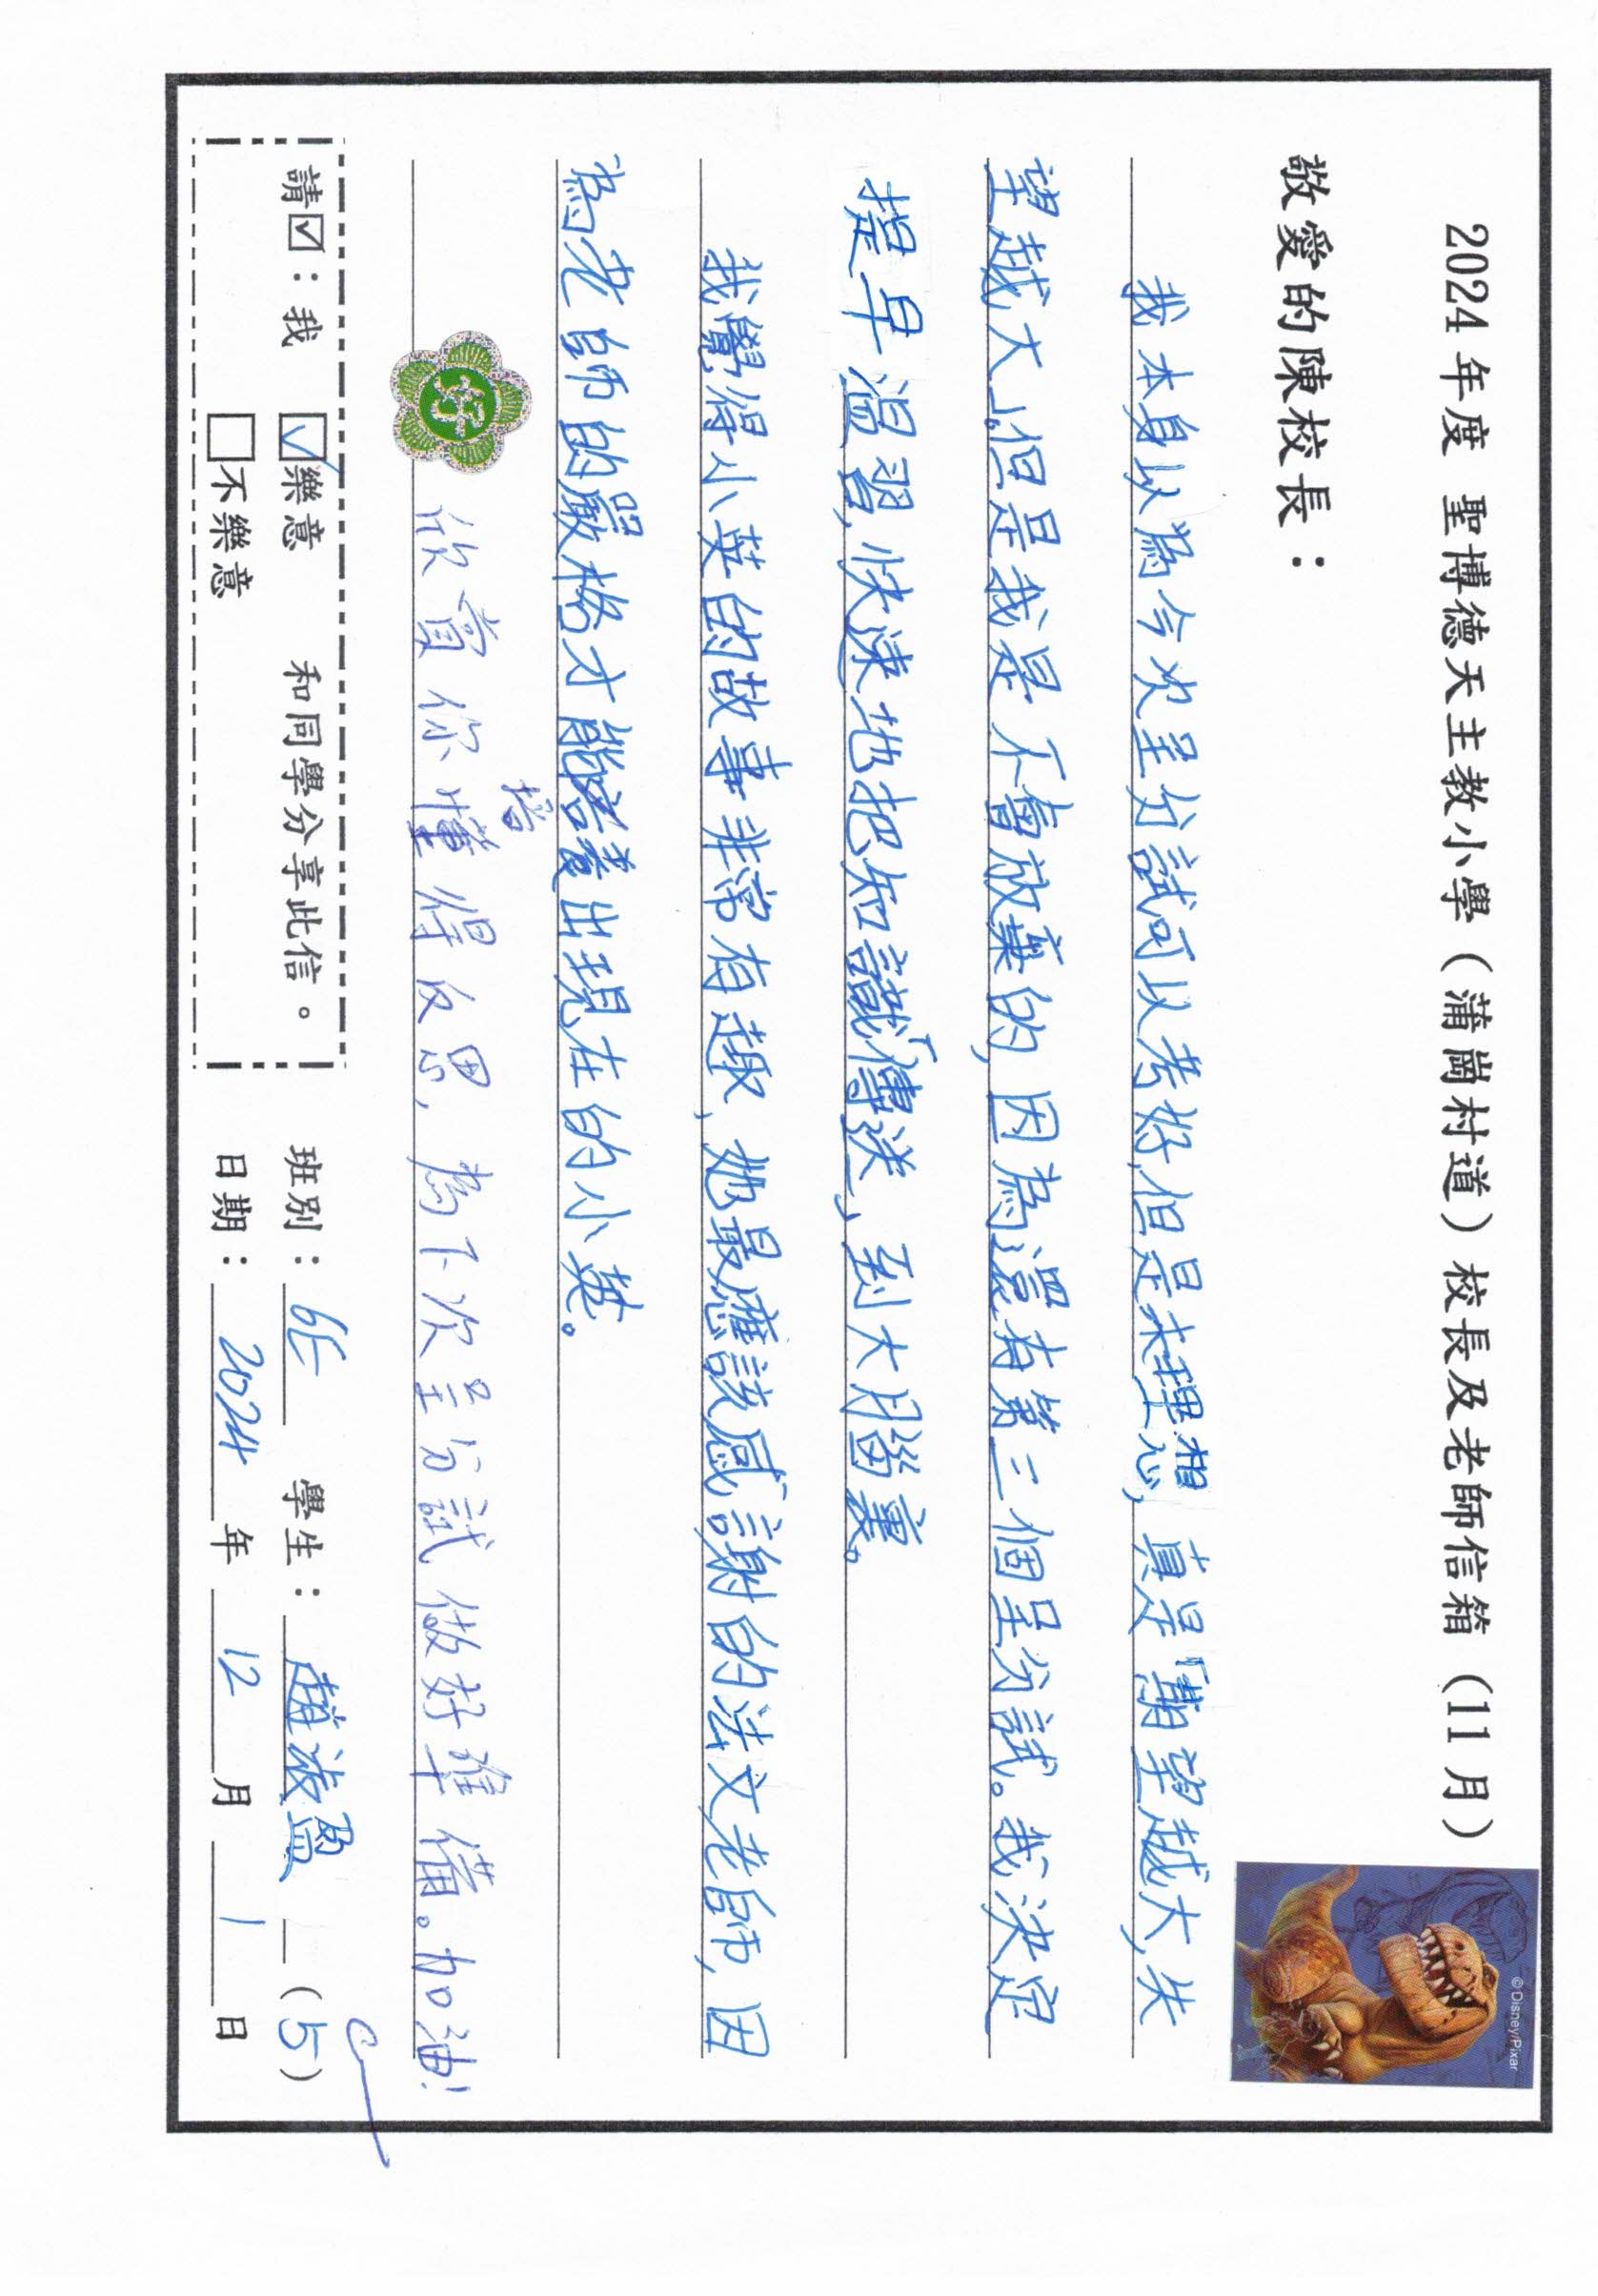 2024 年度 聖博德天主教小學（蒲崗村道）校長及老師信箱（11 月）
© Disney/Pixar
敬愛的陳校長：
我本身以為今次呈分試可以考好，但是未理想，真是「期望越大，失
望越大」。但是我是不會放棄的，因為還有第二個呈分試。我決定
提早溫習，快速地把知識「傳送」到大腦裏。
我覺得小英的故事非常有趣，她最應該感謝的法文老師，因
為老師的嚴格才能培養出現在的小英。
培
欣賞你懂得反思，為下次呈分試做好準備。加油！
請☑：我 ☑樂意 和同學分享此信。
□不樂意
班別：6E 學生：趙淑盈 (5)
日期：2024 年 12 月 1 日